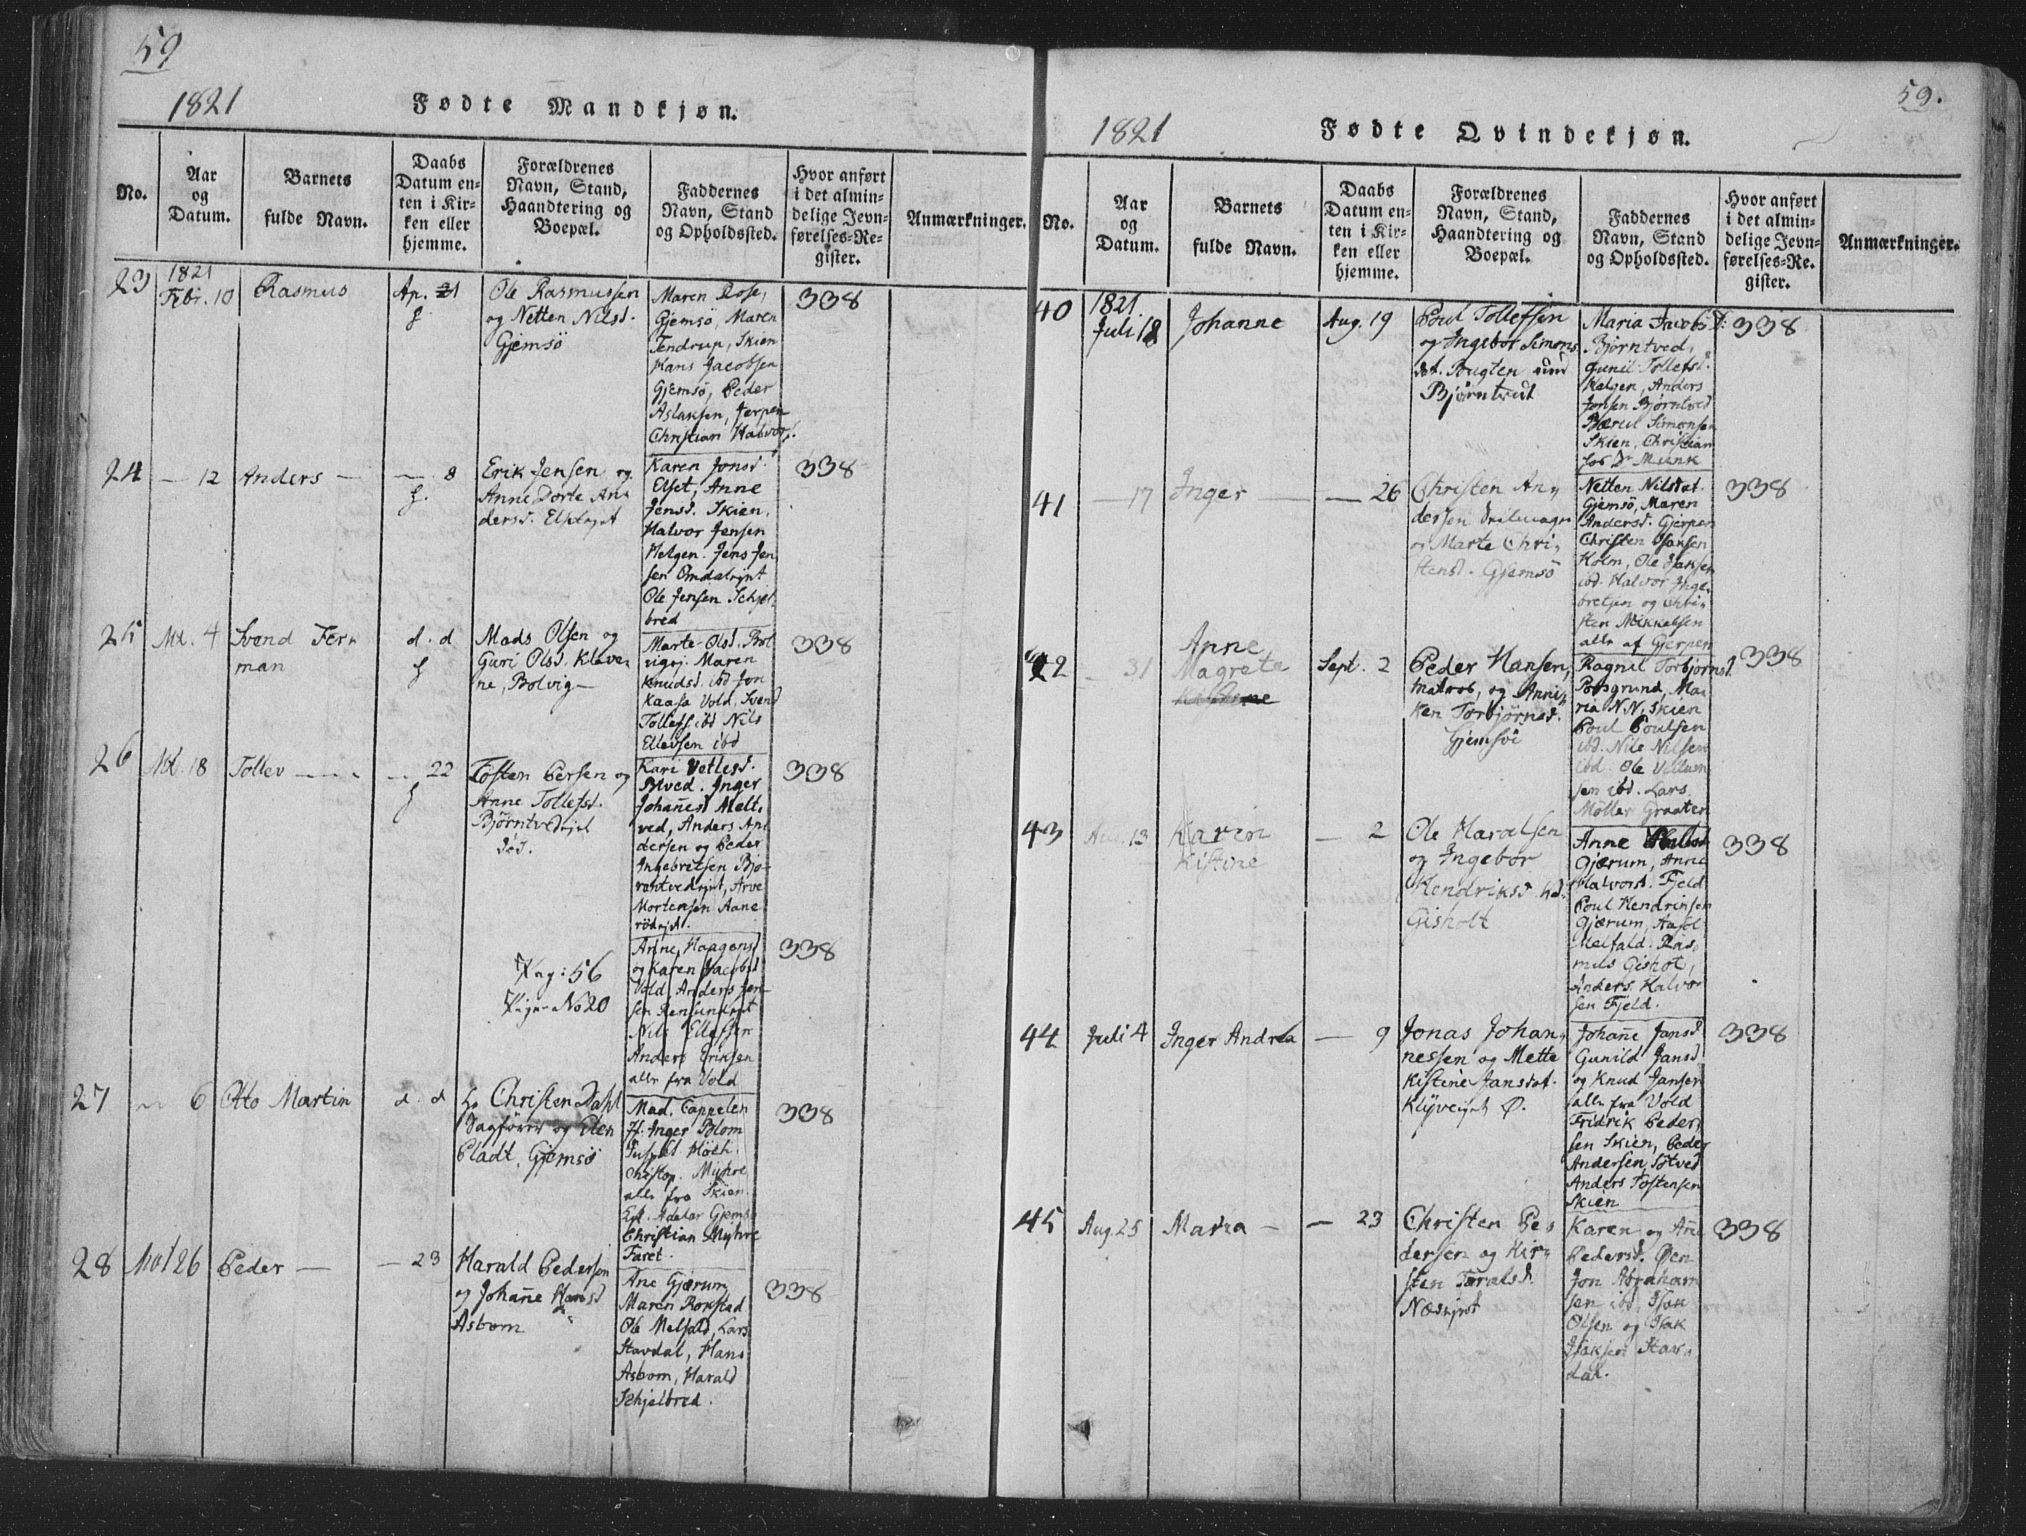 59
1821
Fødte Mandkjøn.
No.
Aar
og
Datum.
Barnets
fulde Navn.
Daabs
Datum en-
ten i Kir-
ken eller
hjemme.
Forældrenes
Navn, Stand,
Haandtering og
Boepæl.
Faddernes
Navn, Stand
og Opholdssted.
Hvor anført
i det almin-
delige Jevn-
førelses-Re-
gister.
Anmærkninger.
23
1821
Febr. 10
Rasmus
Ap. 21
Ole Rasmussen
og Netten Nilsd.
Gjemsö
Maren Rose,
Gjemsö, Maren
Tendrup, Skien
Hans Jacobsen
Gjemsö, Peder
Aslaksen, Jerpen
Christian Halvors.
338
24
— 12
Anders —
— 8
Erik Jensen og
Anne Dorte An-
dersd.
Karen Jonsd.
Elset, Anne
Jensd. Skien,
Halvor Jensen
Helgen. Jens Jen
sen
Ole Jensen Schjel-
bred
338
25
Mt. 4
Svend Fer-
man
d. d
Mads Olsen og
Guri Olsd. Klove-
ne, Bolvig —
Marte Olsd. Bol
vigej. Maren
Knudsd. ibd Jon
Kaasa Vold, Svend
Tollefs. ibd Nils
Ellevsen ibd
338
26
Mt. 18
Tollev — — —
— 22
Tosten Persen og
Anne Tollefsd.
Kari Vetlesd.
Inger
Johañesd Melt-
ved, Anders An
dersen og Peder
Ingebretsen Bjö-
rntvedejet, Arve
Mortensen Aane
rödejet.
338
Pag: 56
No 20
Anne Haagensd
og Karen Jacobsd
Vold, Anders Jen
sen
Nils Ellefsen
Anders Eriksen
alle fra Vold
338
27
— 6
Otto Martin
d. d
Hr Christen Dahl
Sagförer og Elen
Pladt, Gjemsö
Mad. Cappelen
Jf. Inger Blom
Höch.
Christop. Myhre
alle fra Skien.
Adelar Gjemsö
Christian Myhre
Faret.
338
28
26
Peder —
— 23
Harald Pedersen
og Johañe Hansd
Asbom
Ane Gjærum,
Maren Rokstad
Ole Melfald, Lars
Stavdal, Hans
Asbom, Harald
Schjelbred.
338
59.
1821
Fødte Qvindekjøn.
No.
Aar
og
Datum.
Barnets
fulde Navn.
Daabs
Datum en-
ten i Kir-
ken eller
hjemme.
Forældrenes
Navn, Stand,
Haandtering og
Boepæl.
Faddernes
Navn, Stand
og Opholdssted.
Hvor anført
i det almin-
delige Jevn-
førelses-Re-
gister.
Anmærkninger.
40
1821
Juli 18
Johanne
Aug. 19
Poul Tollefsen
og Ingebor Simons
dat.
Maria Jacobs D:
Björntved,
Gunil Tollefsd.
Helgen, Anders
Jonsen Björntved
Simonsen
Skien, Christian
Munk
338
41
— 17
Inger —
— 26
Christen An-
dersen
og Marte Chri-
stensd. Gjemsö
Netten Nilsdat.
Gjemsö, Maren
Andersd. Gjerpen
Christen Isaksen
Holm, Ole Isaksen
ibd. Halvor Inge-
bretsen og Chri-
sten Mikkelsen
alle af Gjerpen
338
42
— 31
Anne
Magrete
Sept. 2
Peder Hansen,
Matros, og Anni-
ken Torbjörnsd.
Gjemsöe
Ragnil Torbjörnsd.
Porsgrund, Ma-
ria N.N. Skien
Poul Poulsen
ibd. Nils Nilsen
ibd. Ole Villum
sen ibd. Lars
Möller Graaten
338
43
Aug. 13
Karen
Kistine
— 2
Ole Haraldsen
og Ingebor
Hendriksd.
Gisholt
Anne
Gjærum, Anne
Halvorsd. Fjeld
Poul Hendriksen
Gjærum,
Melfald. Ras-
mus Gisholt,
Anders Halvor
sen Fjeld.
338
44
Juli 4
Inger Andrea
— 9
Jonas Johan-
nessen og Mette
Kistine Jansdat.
Johañe Jansd
Gunild Jansd
og Knud Jansen
alle fra Vold
Fridrik Peder-
sen Skien, Peder
Andersen, Sötved
Anders Tostensen
Skien
338
45
Aug. 25
Maria —
— 23
Christen Pe-
dersen og Kir-
sten Taralsd.
Næsejet
Karen og Añe
Pedersd. Öen
Jon Abraham
sen ibd, Isak
Olsen og Isak
Isaksen Stav-
dal.
338